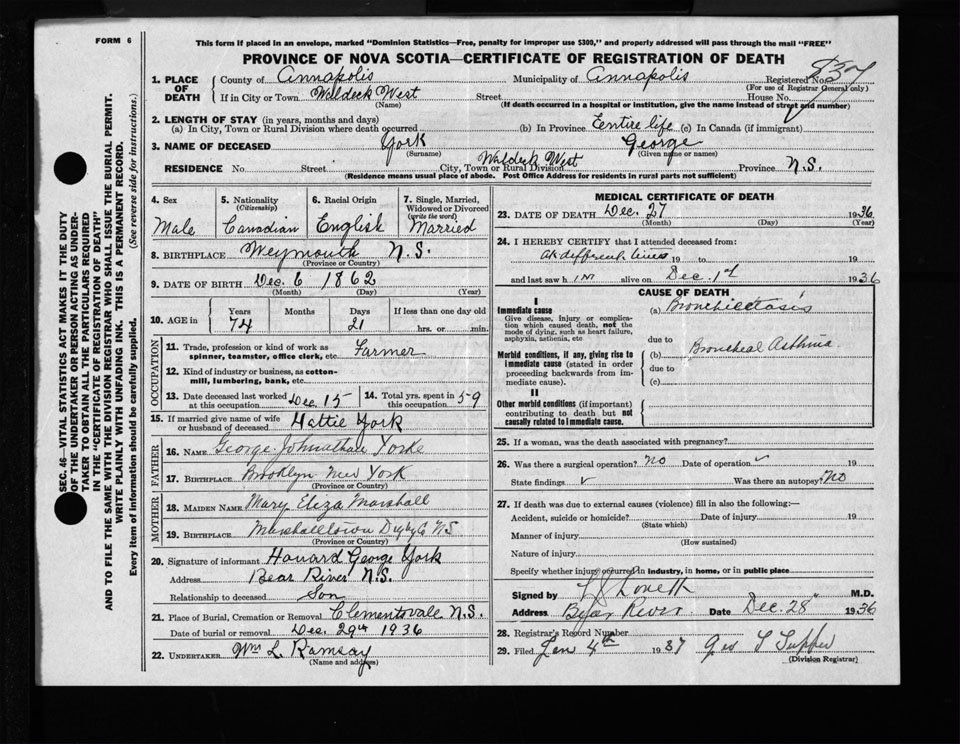 FORM 6
This form if placed in an envelope, marked "Dominion Statistics—Free, penalty for improper use $300," and properly addressed will pass through the mail "FREE"
PROVINCE OF NOVA SCOTIA—CERTIFICATE OF REGISTRATION OF DEATH
1. PLACE OF DEATH County of Annapolis Municipality of Annapolis Registered No.
(For use of Registrar General only)
If in City or Town Waldeck West Street House No.
(Name) (If death occurred in a hospital or institution, give the name instead of street and number)
2. LENGTH OF STAY (in years, months and days)
(a) In City, Town or Rural Division where death occurred (b) In Province Entire life (c) In Canada (if immigrant)
3. NAME OF DECEASED York George
(Surname) (Given name or names)
RESIDENCE No. Street City, Town or Rural Division Waldeck West Province N.S.
(Residence means usual place of abode. Post Office Address for residents in rural parts not sufficient)
4. Sex Male
5. Nationality (Citizenship) Canadian
6. Racial Origin English
7. Single, Married, Widowed or Divorced (write the word) Married
8. BIRTHPLACE Weymouth N.S.
(Province or Country)
9. DATE OF BIRTH Dec. 6 1862
(Month) (Day) (Year)
10. AGE in Years 74 Months Days 21 If less than one day old hrs. or min.
OCCUPATION
11. Trade, profession or kind of work as spinner, teamster, office clerk, etc. Farmer
12. Kind of industry or business, as cotton-mill, lumbering, bank, etc.
13. Date deceased last worked at this occupation Dec. 15
14. Total yrs. spent in this occupation 59
15. If married give name of wife or husband of deceased Hattie York
FATHER
16. NAME George Johnathan Yorke
17. BIRTHPLACE Brooklyn New York
(Province or Country)
MOTHER
18. MAIDEN NAME Mary Eliza Marshall
19. BIRTHPLACE Marshalltown Digby Co N.S
(Province or Country)
20. Signature of informant Howard George York
Address Bear River N.S.
Relationship to deceased Son
21. Place of Burial, Cremation or Removal Clementsvale N.S.
Date of burial or removal Dec. 29th 1936
22. UNDERTAKER Wm L. Ramsay
(Name and address)
MEDICAL CERTIFICATE OF DEATH
23. DATE OF DEATH Dec. 27 1936
(Month) (Day) (Year)
24. I HEREBY CERTIFY that I attended deceased from:
at different times 19 to 19
and last saw h im alive on Dec. 1st 1936
CAUSE OF DEATH
I
Immediate cause (a) Bronchiectasis
Give disease, injury or complication which caused death, not the mode of dying, such as heart failure, asphyxia, asthenia, etc
due to
Morbid conditions, if any, giving rise to immediate cause (stated in order proceeding backwards from immediate cause).
(b) Broncheal Asthma
due to
(c)
II
Other morbid conditions (if important) contributing to death but not causally related to immediate cause.
25. If a woman, was the death associated with pregnancy?
26. Was there a surgical operation? No Date of operation ✓ 19
State findings ✓ Was there an autopsy? No
27. If death was due to external causes (violence) fill in also the following:—
Accident, suicide or homicide? Date of injury 19
(State which)
Manner of injury
(How sustained)
Nature of injury
Specify whether injury occurred in industry, in home, or in public place
Signed by Lovett M.D.
Address Bear River Date Dec. 28" 1936
28. Registrar's Record Number
29. Filed Jan 4th 1937 Geo T Tupper
(Division Registrar)
SEC. 46—VITAL STATISTICS ACT MAKES IT THE DUTY
OF THE UNDERTAKER OR PERSON ACTING AS UNDER-
TAKER TO OBTAIN ALL THE PARTICULARS REQUIRED
IN THE "CERTIFICATE OF REGISTRATION OF DEATH"
AND TO FILE THE SAME WITH THE DIVISION REGISTRAR WHO SHALL ISSUE THE BURIAL PERMIT.
WRITE PLAINLY WITH UNFADING INK. THIS IS A PERMANENT RECORD.
Every item of information should be carefully supplied. (See reverse side for instructions.)